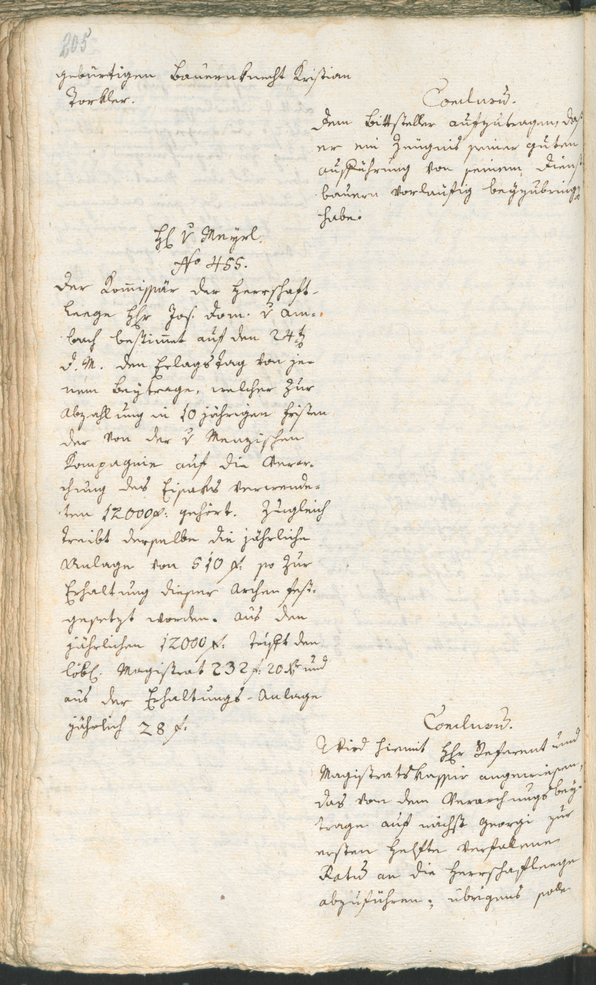 205
gebürtigen Bauernknecht Kristian
Torkler.
Conclusum.
Dem Bittsteller aufzutragen, daß
er ein Zeugnis seiner guten
Aufführung von seinem Dienst-
bauern vorläufig beyzubringen
habe.
H v Meyrl.
No 455.
Der Kommissär der Herrschaft
Leege Hr Jos. Dom. v Am-
bach bestimmt auf den 24t
d. M. den Erlagstag von je-
nem Beytrage, welcher zur
Abzahlung in 10 jährigen Fristen
der von der v Menzischen
Kompagnie auf die Verar-
chung des Eisaks verwende-
ten 12000 f. gehört. Zugleich
treibt derselbe die jährliche
Anlage von 510 f. so zur
Erhaltung dieser Archen fest-
gesetzt worden. Aus den
jährlichen 12000 f. trifft den
löbl. Magistrat 232 f. 20 x und
aus der Erhaltungs-Anlage
jährlich 28 f.
Conclusum.
Wird hiemit Hr Referent und
Magistratskassier angewiesen,
das von dem Verarchungsbey-
trage auf nächst Georgi zur
ersten Helfte verfallene
Ratum an die Herrschaftleege
abzuführen; übrigens solle